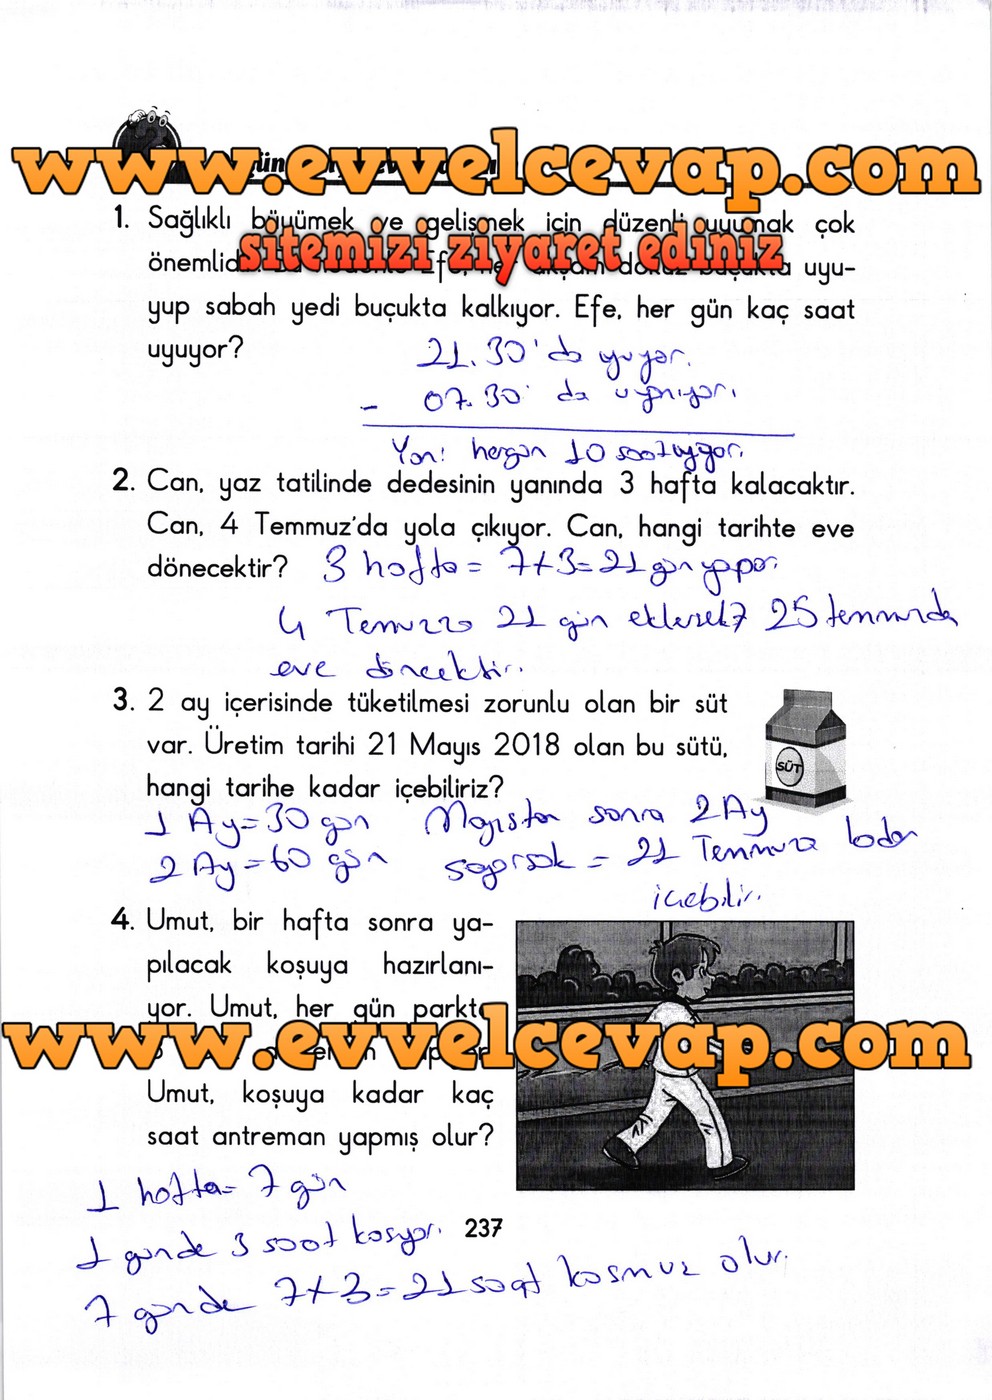 www.evvelcevap.com
1. Sağlıklı büyümek ve gelişmek için düzenli uyumak çok
sitemizi ziyaret ediniz
uyu-
yup sabah yedi buçukta kalkıyor. Efe, her gün kaç saat
uyuyor?
21.30'da uyuyor.
- 07.30' da uyanıyor.
Yani hergün 10 saat uyuyor.
2. Can, yaz tatilinde dedesinin yanında 3 hafta kalacaktır.
Can, 4 Temmuz'da yola çıkıyor. Can, hangi tarihte eve
dönecektir? 3 hafta = 7x3=21 gün yapar.
4 Temuzza 21 gün eklersek 25 temmuzda
eve dönecektir.
3. 2 ay içerisinde tüketilmesi zorunlu olan bir süt
var. Üretim tarihi 21 Mayıs 2018 olan bu sütü,
hangi tarihe kadar içebiliriz?
SÜT
1 Ay=30 gün Mayıstan sonra 2 Ay
2 Ay=60 gün sayarsak = 21 Temmuza kadar
içebilir.
4. Umut, bir hafta sonra ya-
pılacak koşuya hazırlanı-
yor. Umut, her gün parkta
www.evvelcevap.com
Umut, koşuya kadar kaç
saat antreman yapmış olur?
1 hafta= 7 gün
1 günde 3 saat koşuyor.
237
7 günde 7x3=21 saat kosmuz olur.